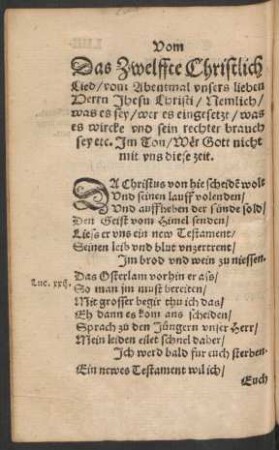 Vom
Das Zwelffte Christlich
Lied/vom Abentmal vnsers lieben
Herrn Jhesu Christi/Nemlich/
was es sey/wer es eingesetzt/was
es wircke vnd sein rechter brauch
sey etc. Im Ton/Wër Gott nicht
mit vns diese zeit.
DA Christus von hie scheidē wolt
Vnd seinen lauff volenden/
Vnd auffheben der sünde sold/
Den Geist vom Himel senden/
Liess er vns ein new Testament/
Seinen leib vnd blut vnzertrent/
Im brod vnd wein zu niessen.
Luc. xxij.
Das Osterlam vorhin er ass/
So man jm must bereiten/
Mit grosser begir thu ich das/
Eh dann es kom ans scheiden/
Sprach zu den Jüngern vnser Herr/
Mein leiden eilet schnel daher/
Ich werd bald fur euch sterben.
Ein newes Testament wil ich/
Euch